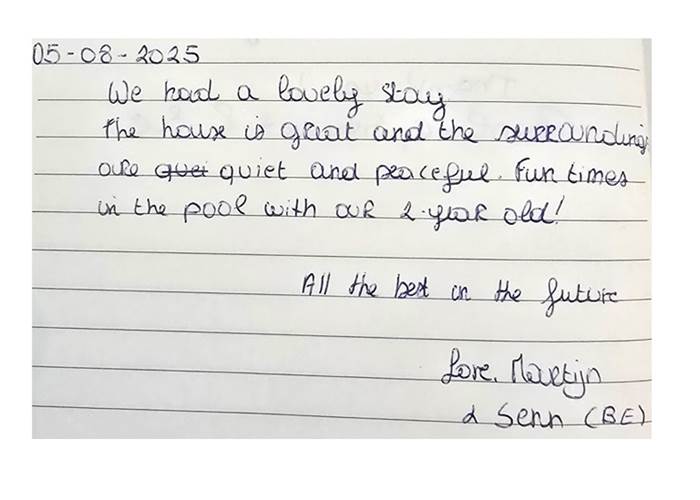 05-08-2025
We had a lovely stay
The house is great and the surroundings
are quiet and peaceful. Fun times
in the pool with our 2-year old!
All the best in the future
Love, Martijn
& Senn (BE)